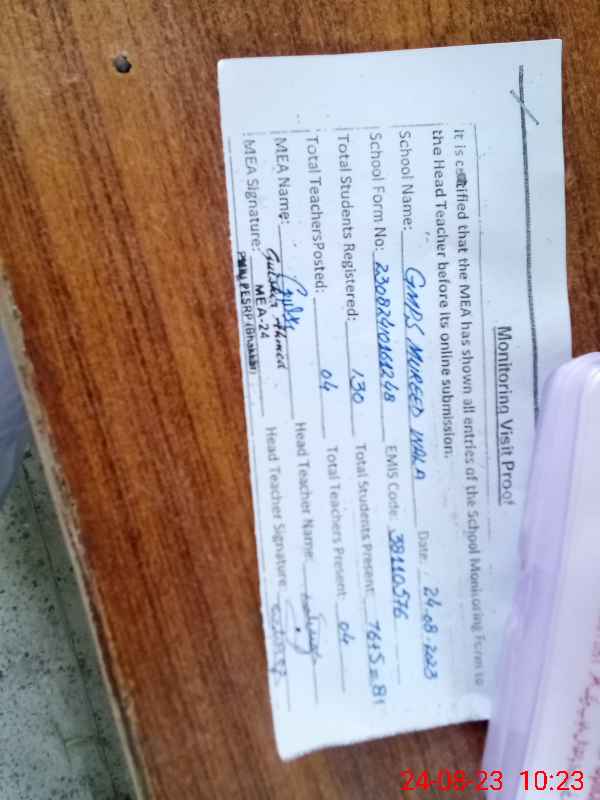 Monitoring Visit Proof
It is certified that the MEA has shown all entries of the School Monitoring Form to
the Head Teacher before its online submission.
School Name: GMPS MUREED WALA Date: 24-08-2023
School Form No: EMIS Code: 38110576
Total Students Registered: 130 Total Students Present: 76+5=81
Total TeachersPosted: 04 Total Teachers Present: 04
MEA Name: Gulsher Ahmed Head Teacher Name:
MEA Signature: MEA-24 Head Teacher Signature:
PMIU PESRP (Bhakkar)
24-08-23 10:23